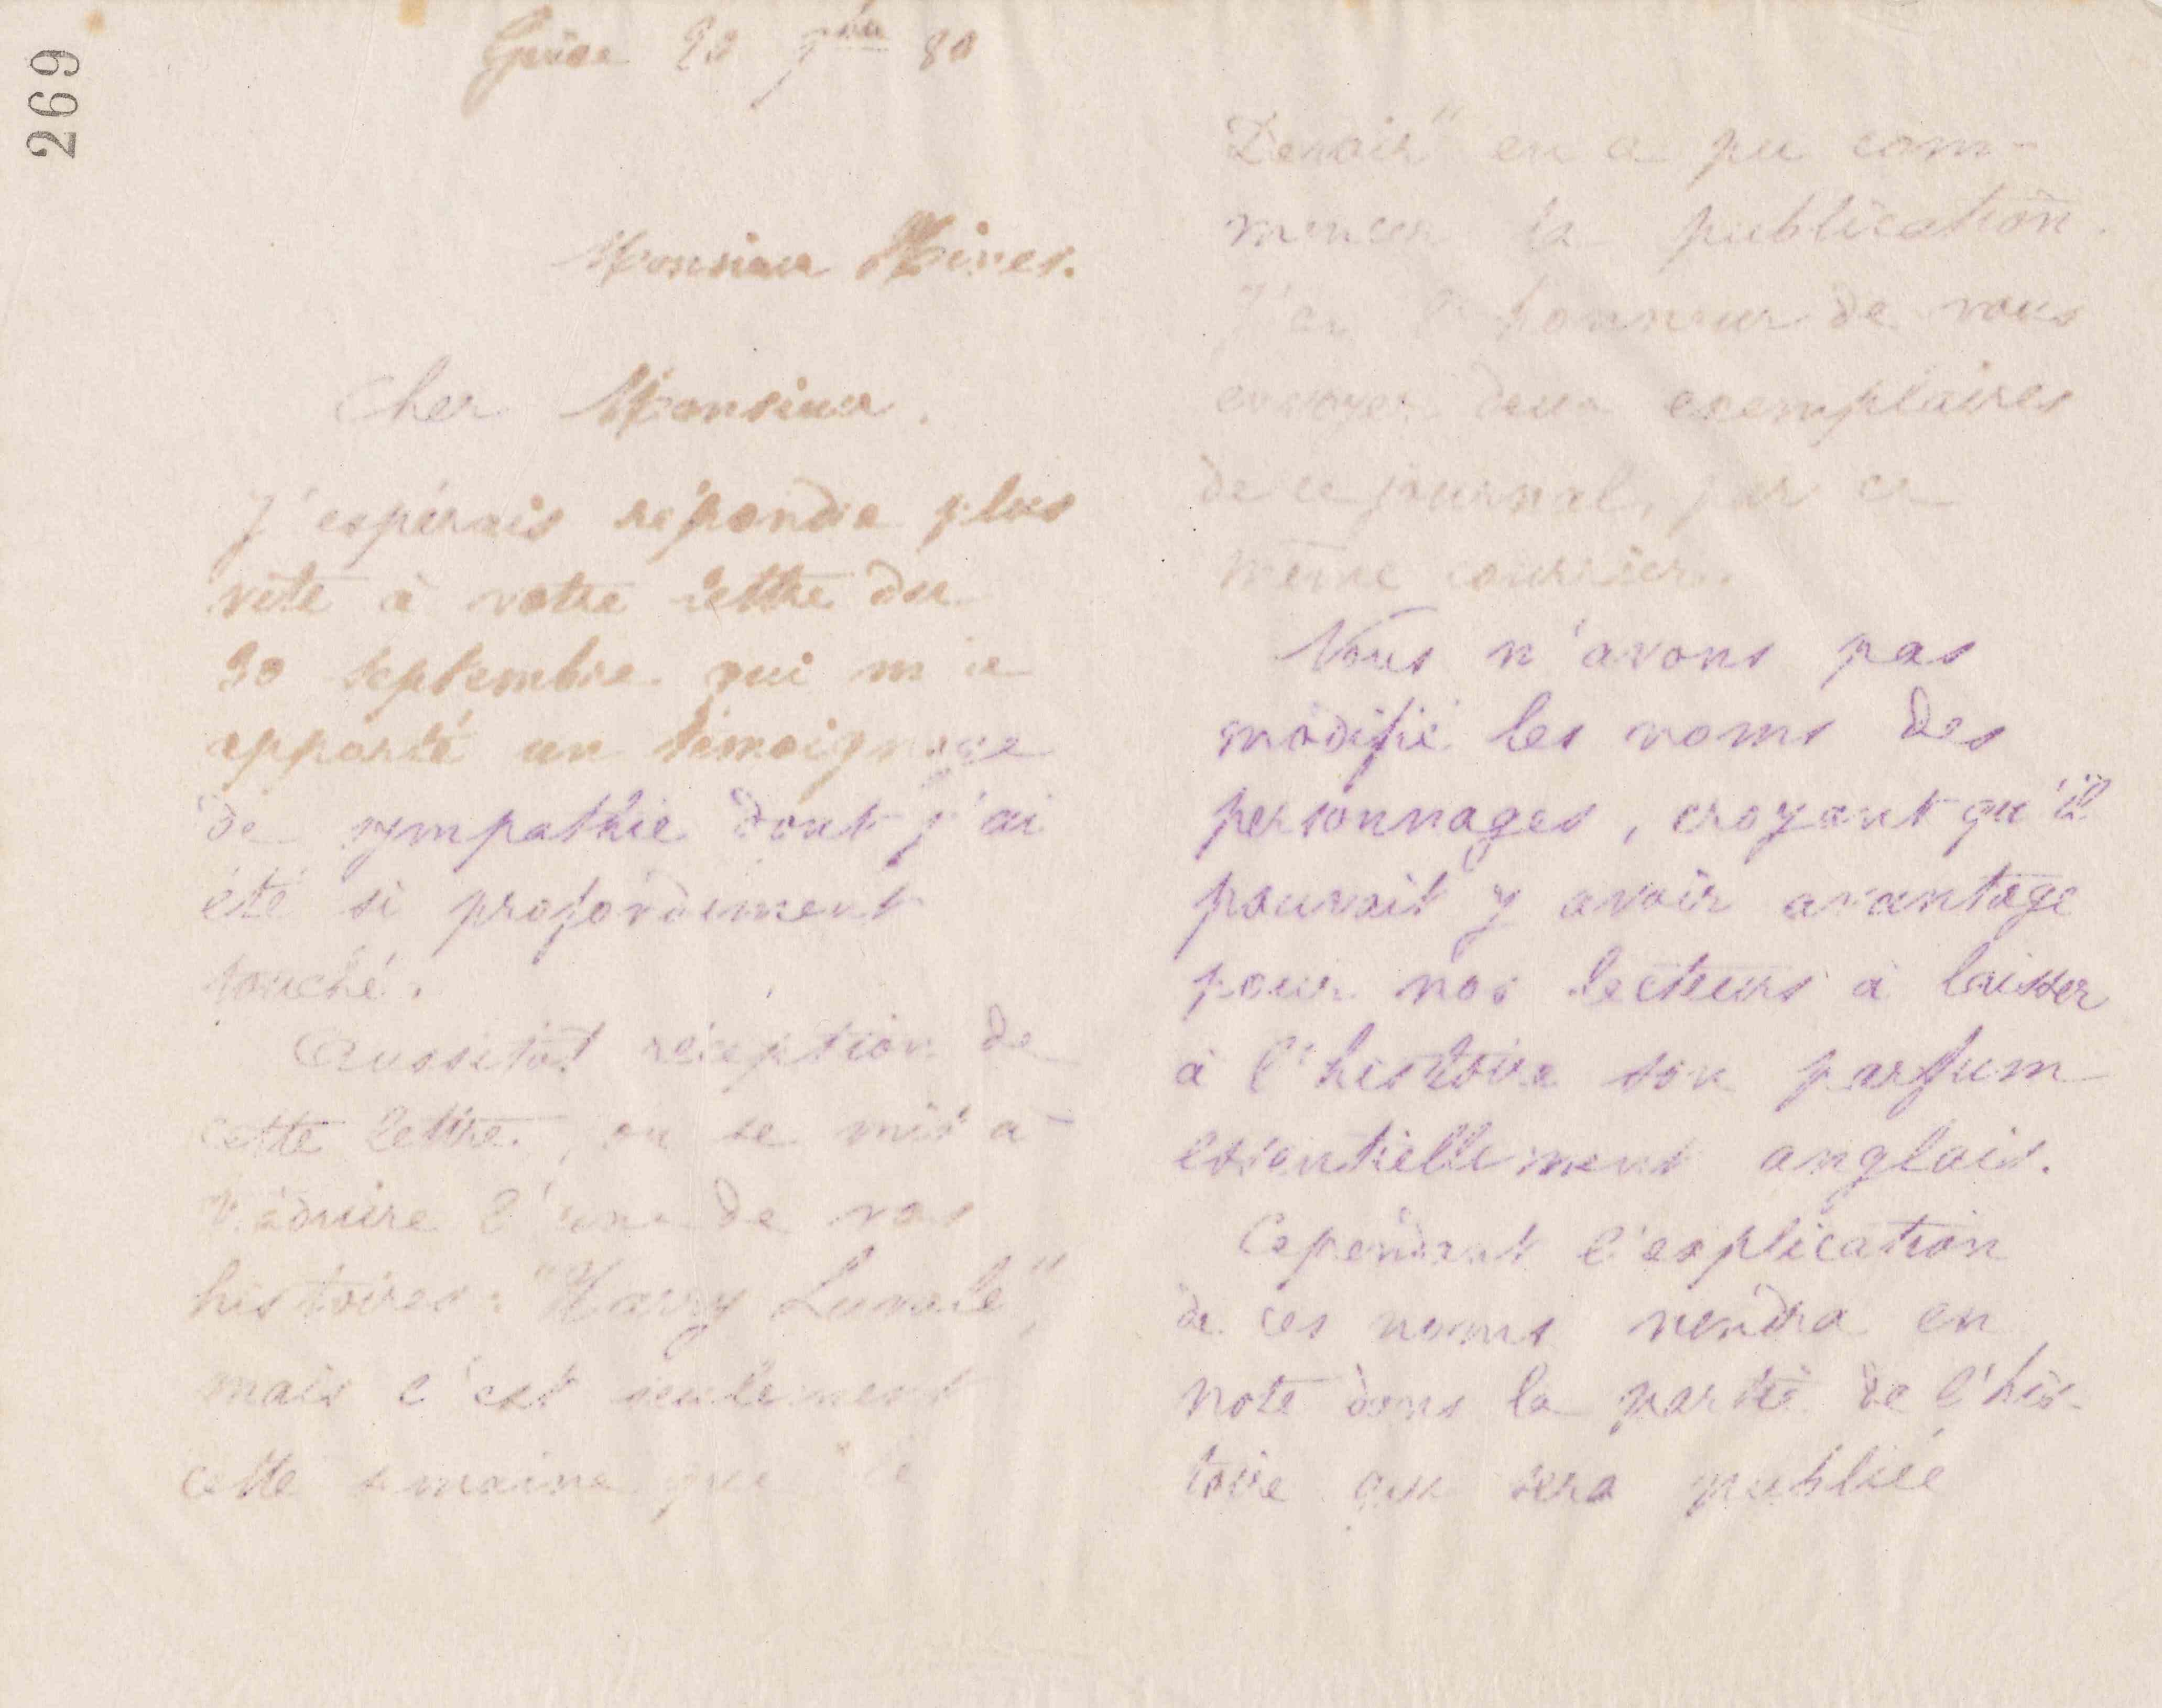 269
Guise 20 9bre 80
Monsieur
Cher Monsieur.
J'espérais répondre plus
vite à votre lettre du
30 septembre qui m'a
apporté un témoignage
de sympathie dont j'ai
été si profondément
touché.
Aussitôt réception de
cette lettre, on se mit à
traduire l'une de vos
histoires : "Harry
mais c'est seulement
cette semaine que le
Devoir" en a pu com-
mencer la publication.
J'ai l'honneur de vous
envoyer deux exemplaires
de ce journal, par ce
même courrier.
Nous n'avons pas
modifié les noms des
personnages, croyant qu'il
pouvait y avoir avantage
pour nos lecteurs à laisser
à l'histoire son parfum
essentiellement anglais.
Cependant l'explication
de ces noms viendra en
note dans la partie de l'his-
toire qui sera publiée